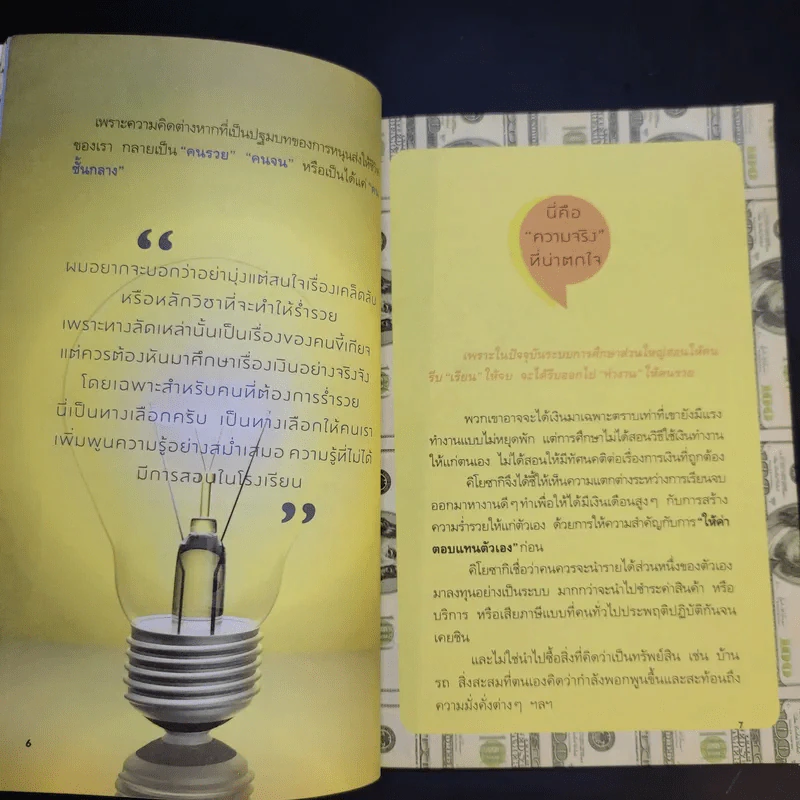 เพราะความคิดต่างหากที่เป็นปฐมบทของการหนุนส่งให้ชีวิต
ของเรา กลายเป็น "คนรวย" "คนจน" หรือเป็นได้แค่ "คน
ชั้นกลาง"
“
ผมอยากจะบอกว่าอย่ามุ่งแต่สนใจเรื่องเคล็ดลับ
หรือหลักวิชาที่จะทำให้ร่ำรวย
เพราะทางลัดเหล่านั้นเป็นเรื่องของคนขี้เกียจ
แต่ควรต้องหันมาศึกษาเรื่องเงินอย่างจริงจัง
โดยเฉพาะสำหรับคนที่ต้องการร่ำรวย
นี่เป็นทางเลือกครับ เป็นทางเลือกให้คนเรา
เพิ่มพูนความรู้อย่างสม่ำเสมอ ความรู้ที่ไม่ได้
มีการสอนในโรงเรียน
”
6
นี่คือ
"ความจริง"
ที่น่าตกใจ
เพราะในปัจจุบันระบบการศึกษาส่วนใหญ่สอนให้คน
รีบ "เรียน" ให้จบ จะได้รีบออกไป "ทำงาน" ให้คนรวย
พวกเขาอาจจะได้เงินมาเฉพาะตราบเท่าที่เขายังมีแรง
ทำงานแบบไม่หยุดพัก แต่การศึกษาไม่ได้สอนวิธีใช้เงินทำงาน
ให้แก่ตนเอง ไม่ได้สอนให้มีทัศนคติต่อเรื่องการเงินที่ถูกต้อง
คิโยซากิจึงได้ชี้ให้เห็นความแตกต่างระหว่างการเรียนจบ
ออกมาหางานดีๆ ทำเพื่อให้ได้มีเงินเดือนสูงๆ กับการสร้าง
ความร่ำรวยให้แก่ตัวเอง ด้วยการให้ความสำคัญกับการ "ให้ค่า
ตอบแทนตัวเอง" ก่อน
คิโยซากิเชื่อว่าคนควรจะนำรายได้ส่วนหนึ่งของตัวเอง
มาลงทุนอย่างเป็นระบบ มากกว่าจะนำไปชำระค่าสินค้า หรือ
บริการ หรือเสียภาษีแบบที่คนทั่วไปประพฤติปฏิบัติกันจน
เคยชิน
และไม่ใช่นำไปซื้อสิ่งที่คิดว่าเป็นทรัพย์สิน เช่น บ้าน
รถ สิ่งสะสมที่ตนเองคิดว่ากำลังพอกพูนขึ้นและสะท้อนถึง
ความมั่งคั่งต่างๆ ฯลฯ
7